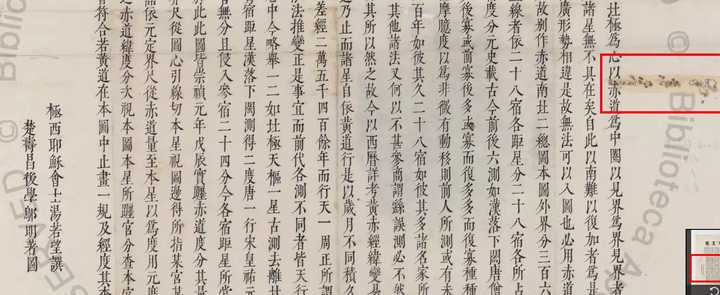 北極為心以赤道為中圍以見界為界見界者
諸星無不具在矣自此以南難以復加者為是
廣形勢相違是故無法可以入圖也必用赤道
故別作赤道南北二總圖本圖外界分三百六
線者依二十八宿各距星分二十八宿各所占
度分元史載古今前後六測如漢落下閎唐僧
後寡或前寡後多或寡而復多多而復寡種種
摩臆度以為非微有動移則前人所測或有未
百年如彼其久二十八宿如彼其多諸名家所
其他諸法又何以不甚參商謂緣誤測必不然
其所以然之故今以西曆詳考黃赤經緯變易
乃止而諸星自依黃道行是以歲月不同積久
差經二萬五千四百餘年而行天一周正所謂
法推變正是事宜而前代各測不同者皆天行
中今略舉一二如北極天樞一星古測去離北
宿距星漢落下閎測得二度唐一行宋皇祐元
無分且侵入參宿二十四分今各宿距星所當
此此圖皆崇禎元年戊辰實躔赤道度分其量
界尺從圖心引線切本星視圖邊得所指某宮某
諸依元定界尺從赤道量至本星以為度用元度
之赤道緯度分次視本圖本星所躔宮分查本宮
者符合若黃道在本圖中止畫一規及經度其本
極西耶穌會士湯若望譔
楚壽昌後學鄔明著圖
Biblioteca Ap